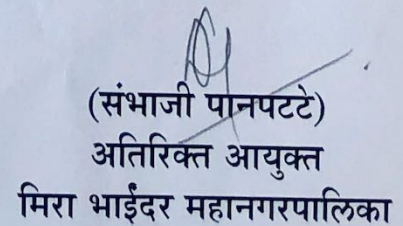 (संभाजी पानपटटे)
अतिरिक्त आयुक्त
मिरा भाईंदर महानगरपालिका